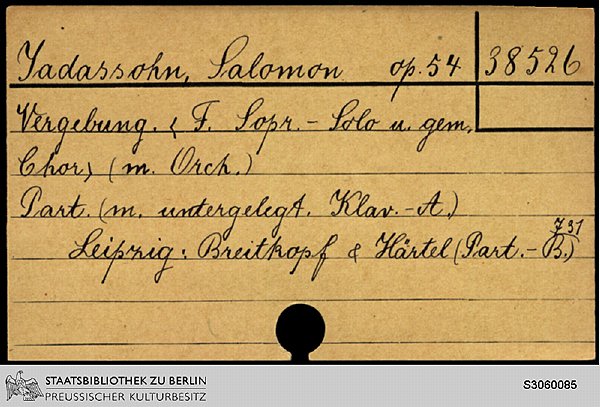 Jadassohn, Salomon op. 54 38526
Vergebung. < F. Sopr.-Solo u. gem.
Chor> (m. Orch.)
Part. (m. untergelegt. Klav.-A.)
Leipzig: Breitkopf & Härtel (Part.-B. 731)
STAATSBIBLIOTHEK ZU BERLIN
PREUSSISCHER KULTURBESITZ
S3060085